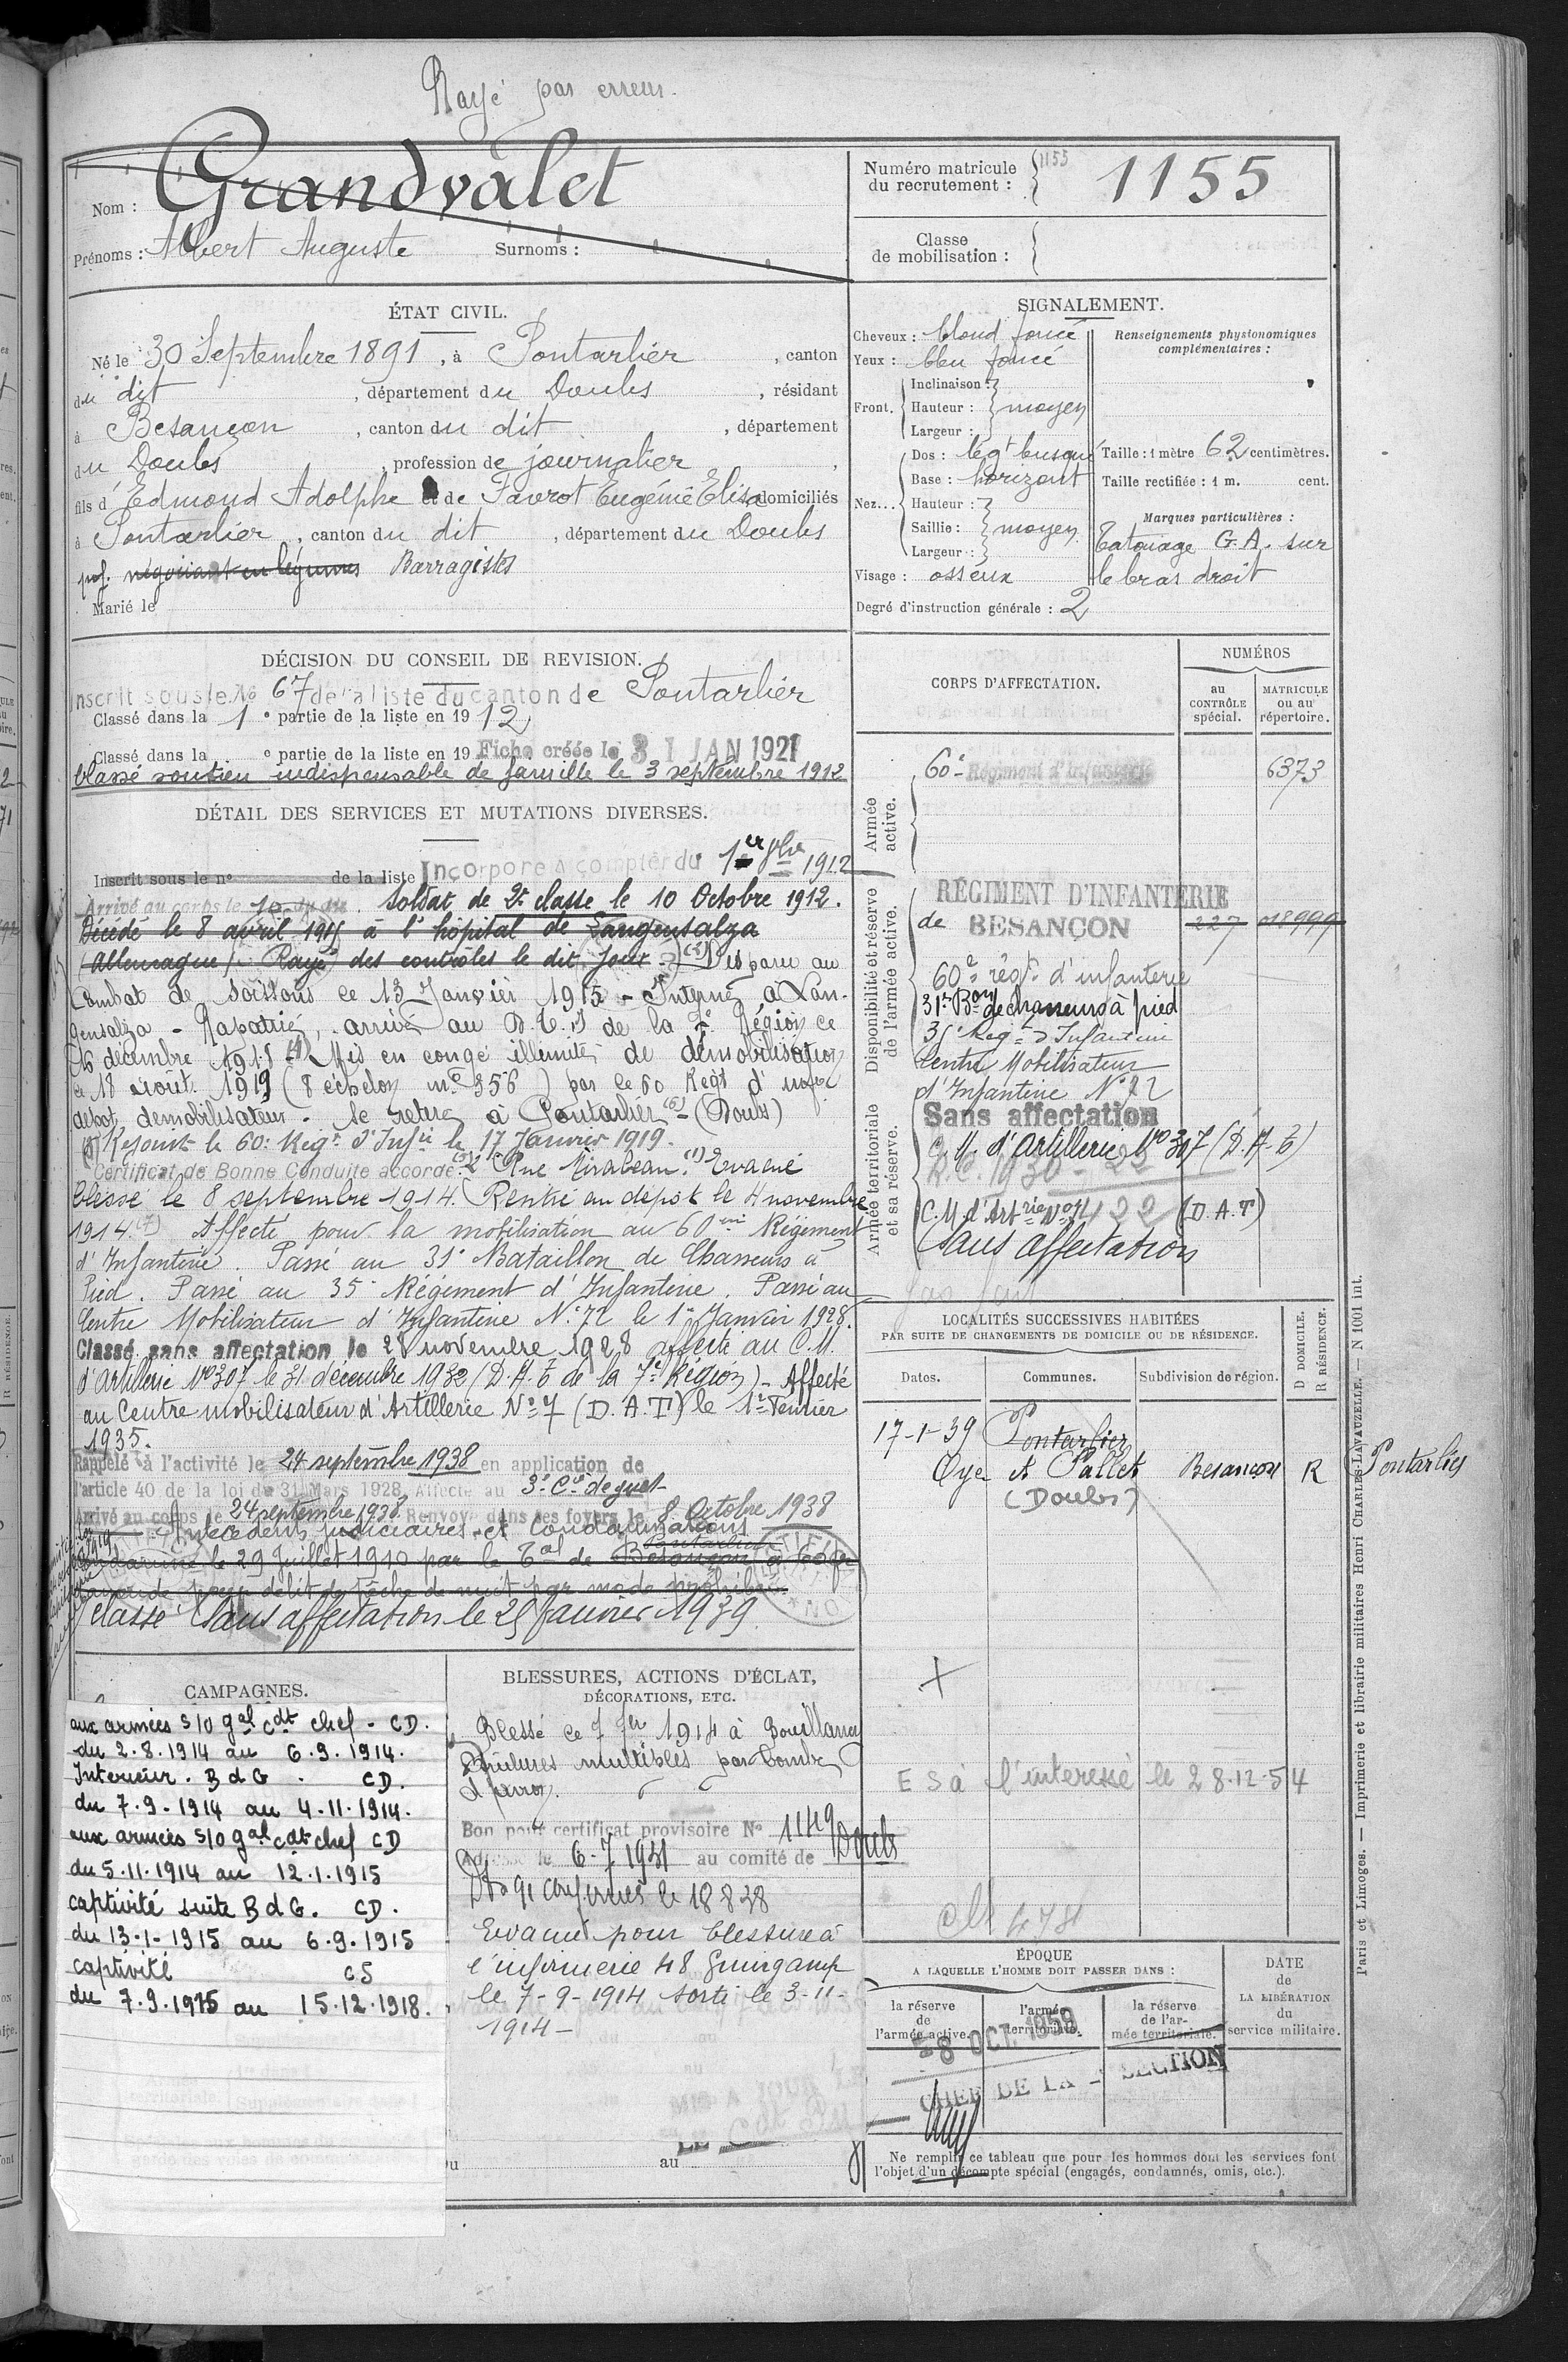 Rayé par erreur.
Nom : Grandvalet
Prénoms : Albert Auguste Surnoms :
Numéro matricule du recrutement : 1155 1155
Classe de mobilisation :
ÉTAT CIVIL.
Né le 30 Septembre 1891, à Pontarlier, canton
du dit, département du Doubs, résidant
à Besançon, canton du dit, département
du Doubs, profession de journalier,
fils d'Edmond Adolphe et de Favrot Eugénie Elisa domiciliés
à Pontarlier, canton du dit, département du Doubs
prof. négociant en légumes Barragistes
Marié le
SIGNALEMENT.
Cheveux : blond foncé
Yeux : bleu foncé
Front. Inclinaison :
Hauteur : moyen
Largeur :
Nez... Dos : légt busqué
Base : horizont
Hauteur :
Saillie : moyen
Largeur :
Visage : osseux
Degré d'instruction générale : 2
Renseignements physionomiques complémentaires :
Taille : 1 mètre 62 centimètres.
Taille rectifiée : 1 m. cent.
Marques particulières :
Tatouage G.A. sur
le bras droit
DÉCISION DU CONSEIL DE REVISION.
Inscrit sous le No 67 de la liste du canton de Pontarlier
Classé dans la 1e partie de la liste en 1912
Classé dans la e partie de la liste en 19 Fiche créée le 31 JAN 1921
Classé soutien indispensable de famille le 3 septembre 1912
DÉTAIL DES SERVICES ET MUTATIONS DIVERSES.
Inscrit sous le n° de la liste Incorporé à compter du 1er 8bre 1912
Arrivé au corps le 10 du dit. Soldat de 2e classe le 10 Octobre 1912.
Décédé le 8 avril 1915 à l'hôpital de Langensalza
(Allemagne) Rayé des contrôles le dit jour. Disparu au
Combat de Soissons le 13 Janvier 1915 - Interné à Lan-
gensalza - Rapatrié, arrivé au D.T.I de la 7e Région le
16 décembre Mis en congé illimité de démobilisation
le 18 août 1919 (8 échelon n° 356) par le 60 Regt d'infie
dépot démobilisateur. Se retire à Pontarlier (Doubs)
Rejoint le 60e Régt d'Infie le 17 Janvier 1919.
Certificat de Bonne Conduite accordé. 2 Rue Mirabeau. (1) Evacué
blessé le 8 septembre 1914. Rentré au dépot le 4 novembre
1914. (7) Affecté pour la mobilisation au 60ème Régiment
d'Infanterie. Passé au 31e Bataillon de Chasseurs à
Pied. Passé au 35e Régiment d'Infanterie. Passé au
Centre Mobilisateur d'Infanterie N° 72 le 1er Janvier 1928.
Classé sans affectation le 28 novembre 1928 affecté au C.M.
d'Artillerie N° 307 le 31 décembre 1932 (D.A.T de la 7e Région) - Affecté
au Centre mobilisateur d'Artillerie N° 7 (D.A.T) le 1er Février
1935.
Rappelé à l'activité le 24 septembre 1938 en application de
l'article 40 de la loi du 31 Mars 1928. Affecté au 3e Cie de guet
Arrivé au corps le 24 septembre 1938. Renvoyé dans ses foyers le 8 Octobre 1938
Antécédents judiciaires et Condamnations
Condamné le 29 Juillet 1910 par le Tal de Besançon Pontarlier à
amende pour délit de pêche de nuit par mode prohibé
Classé Sans affectation le 25 Janvier 1939
CORPS D'AFFECTATION.
NUMÉROS
au CONTRÔLE spécial.
MATRICULE ou au répertoire.
Armée active.
60e Régiment d'infanterie 6373
Disponibilité et réserve de l'armée active.
RÉGIMENT D'INFANTERIE
de BESANÇON 227 018999
60e régt d'infanterie
31e Bon de chasseurs à pied
35e Regt d'Infanterie
Centre Mobilisateur
d'Infanterie N° 72
Armée territoriale et sa réserve.
Sans affectation
C.M. d'artillerie N° 307 (D.A.T)
C.M. d'Artrie N° 7 (D.A.T)
Sans affectation
LOCALITÉS SUCCESSIVES HABITÉES
PAR SUITE DE CHANGEMENTS DE DOMICILE OU DE RÉSIDENCE.
Dates. Communes. Subdivision de région. D DOMICILE. R RÉSIDENCE.
17-1-39 Pontarlier
Oye et Pallet Besançon R Pontarlier
(Doubs)
E S à l'intéressé le 28-12-54
CAMPAGNES.
aux armées S/O gal cdt chef - CD.
du 2.8.1914 au 6.9.1914.
Intérieur. B d G. CD.
du 7.9.1914 au 4.11.1914.
aux armées S/O gal cdt chef CD
du 5.11.1914 au 12.1.1915
captivité suite B d G. CD.
du 13-1-1915 au 6.9.1915
captivité CS
du 7.9.1915 au 15.12.1918.
BLESSURES, ACTIONS D'ÉCLAT,
DÉCORATIONS, ETC.
Blessé le 7 7bre 1914 à Bouillancy
Brûlures multiples par bombe
d'avion.
Bon pour certificat provisoire N° 1149
Adressé le 6-7-1931 au comité de Doubs
Evacué pour blessure à
l'infirmerie 48 Guingamp
le 7-9-1914 sorti le 3-11-
1914 -
du au
ÉPOQUE
A LAQUELLE L'HOMME DOIT PASSER DANS :
la réserve de l'armée active.
l'armée territoriale.
la réserve de l'armée territoriale.
DATE de LA LIBÉRATION du service militaire.
8 OCT. 1959
CHEF DE LA SECTION
Ne remplir ce tableau que pour les hommes dont les services font
l'objet d'un décompte spécial (engagés, condamnés, omis, etc.).
Paris et Limoges. — Imprimerie et librairie militaires Henri CHARLES-LAVAUZELLE. — N 1001 int.